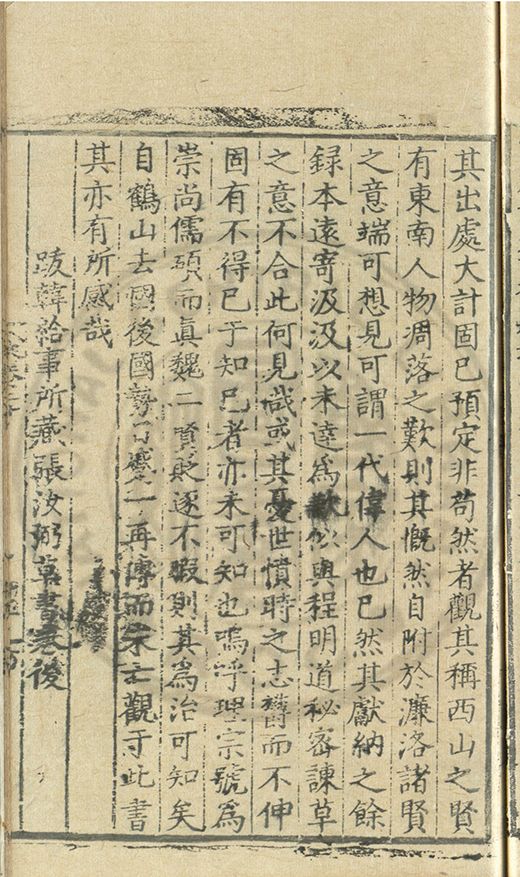 其出處大計固已預定非苟然者觀其稱西山之賢
有東南人物凋落之歎則其慨然自附於濂洛諸賢
之意端可想見可謂一代偉人也已然其獻納之餘
録本遠寄汲汲以未達爲歉似與程明道祕密諫草
之意不合此何見哉或其憂世憤時之志鬱而不伸
固有不得已于知已者亦未可知也嗚呼理宗號爲
崇尚儒碩而眞魏二賢貶逐不暇則其爲治可知矣
自鶴山去國後國勢日蹙一再傳而宋亡觀于此書
其亦有所感哉
跋韓給事所藏張汝弼草書卷後